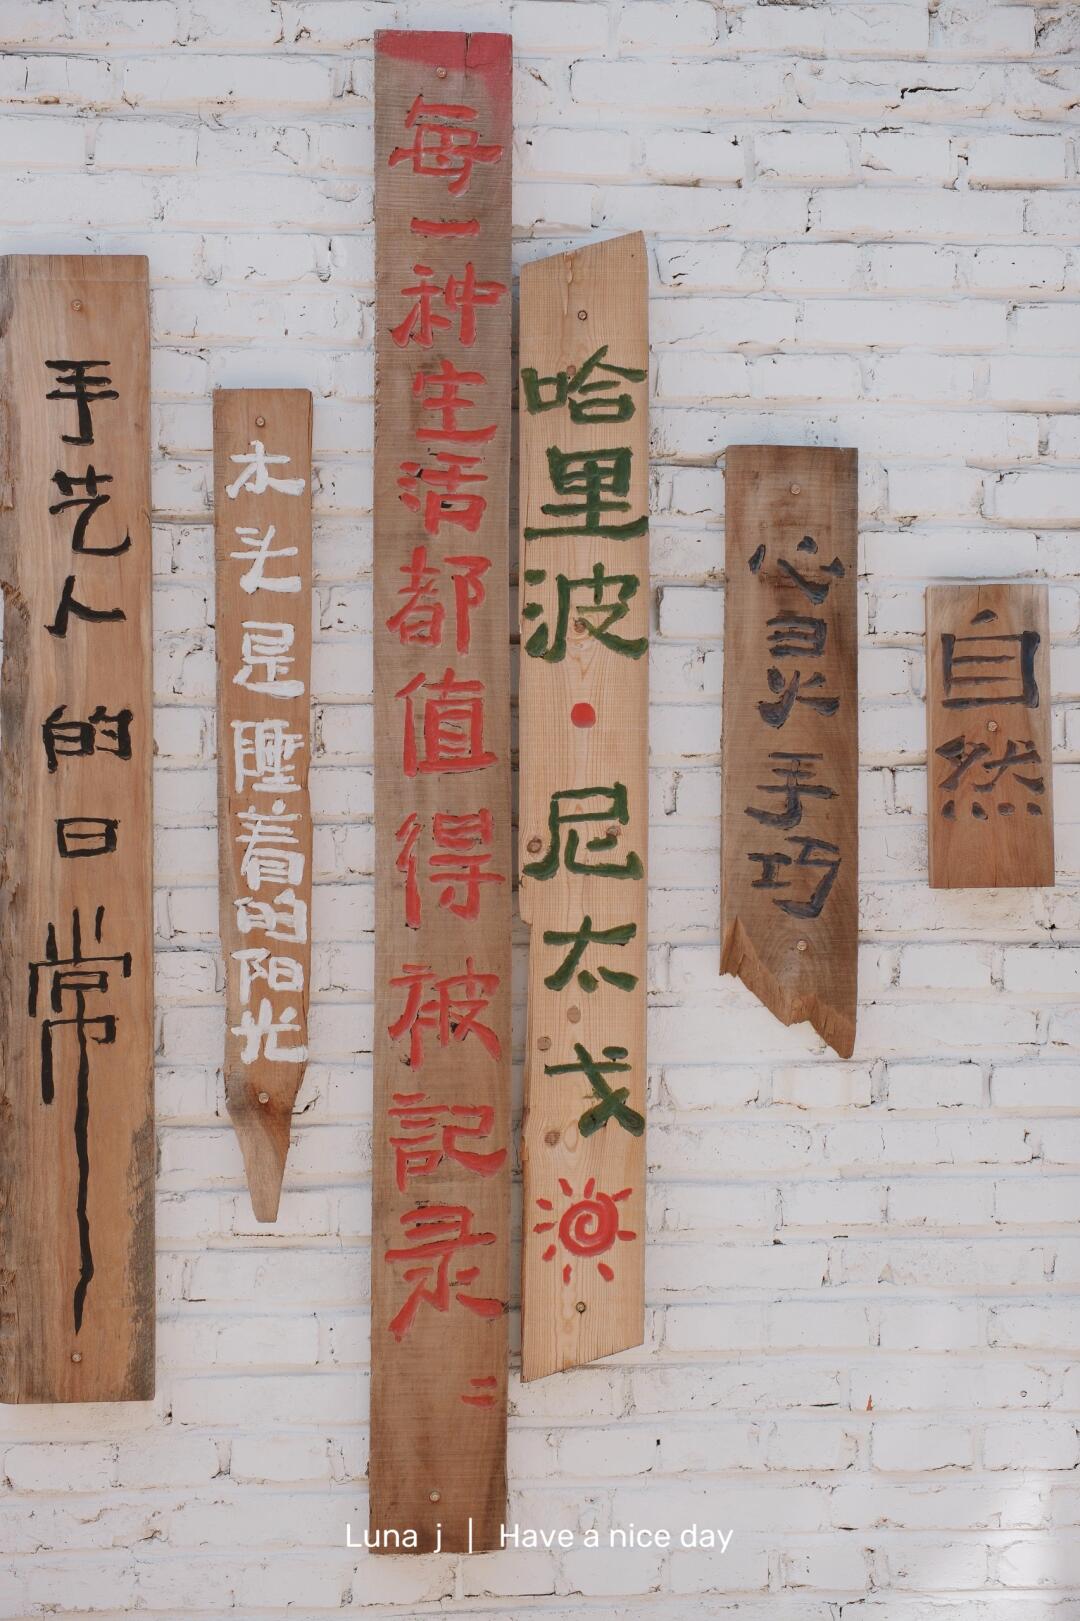 手艺人的日常
木头是睡着的阳光
每一种生活都值得被記录
二
哈里波·尼太戈
心灵手巧
自然
Luna j | Have a nice day